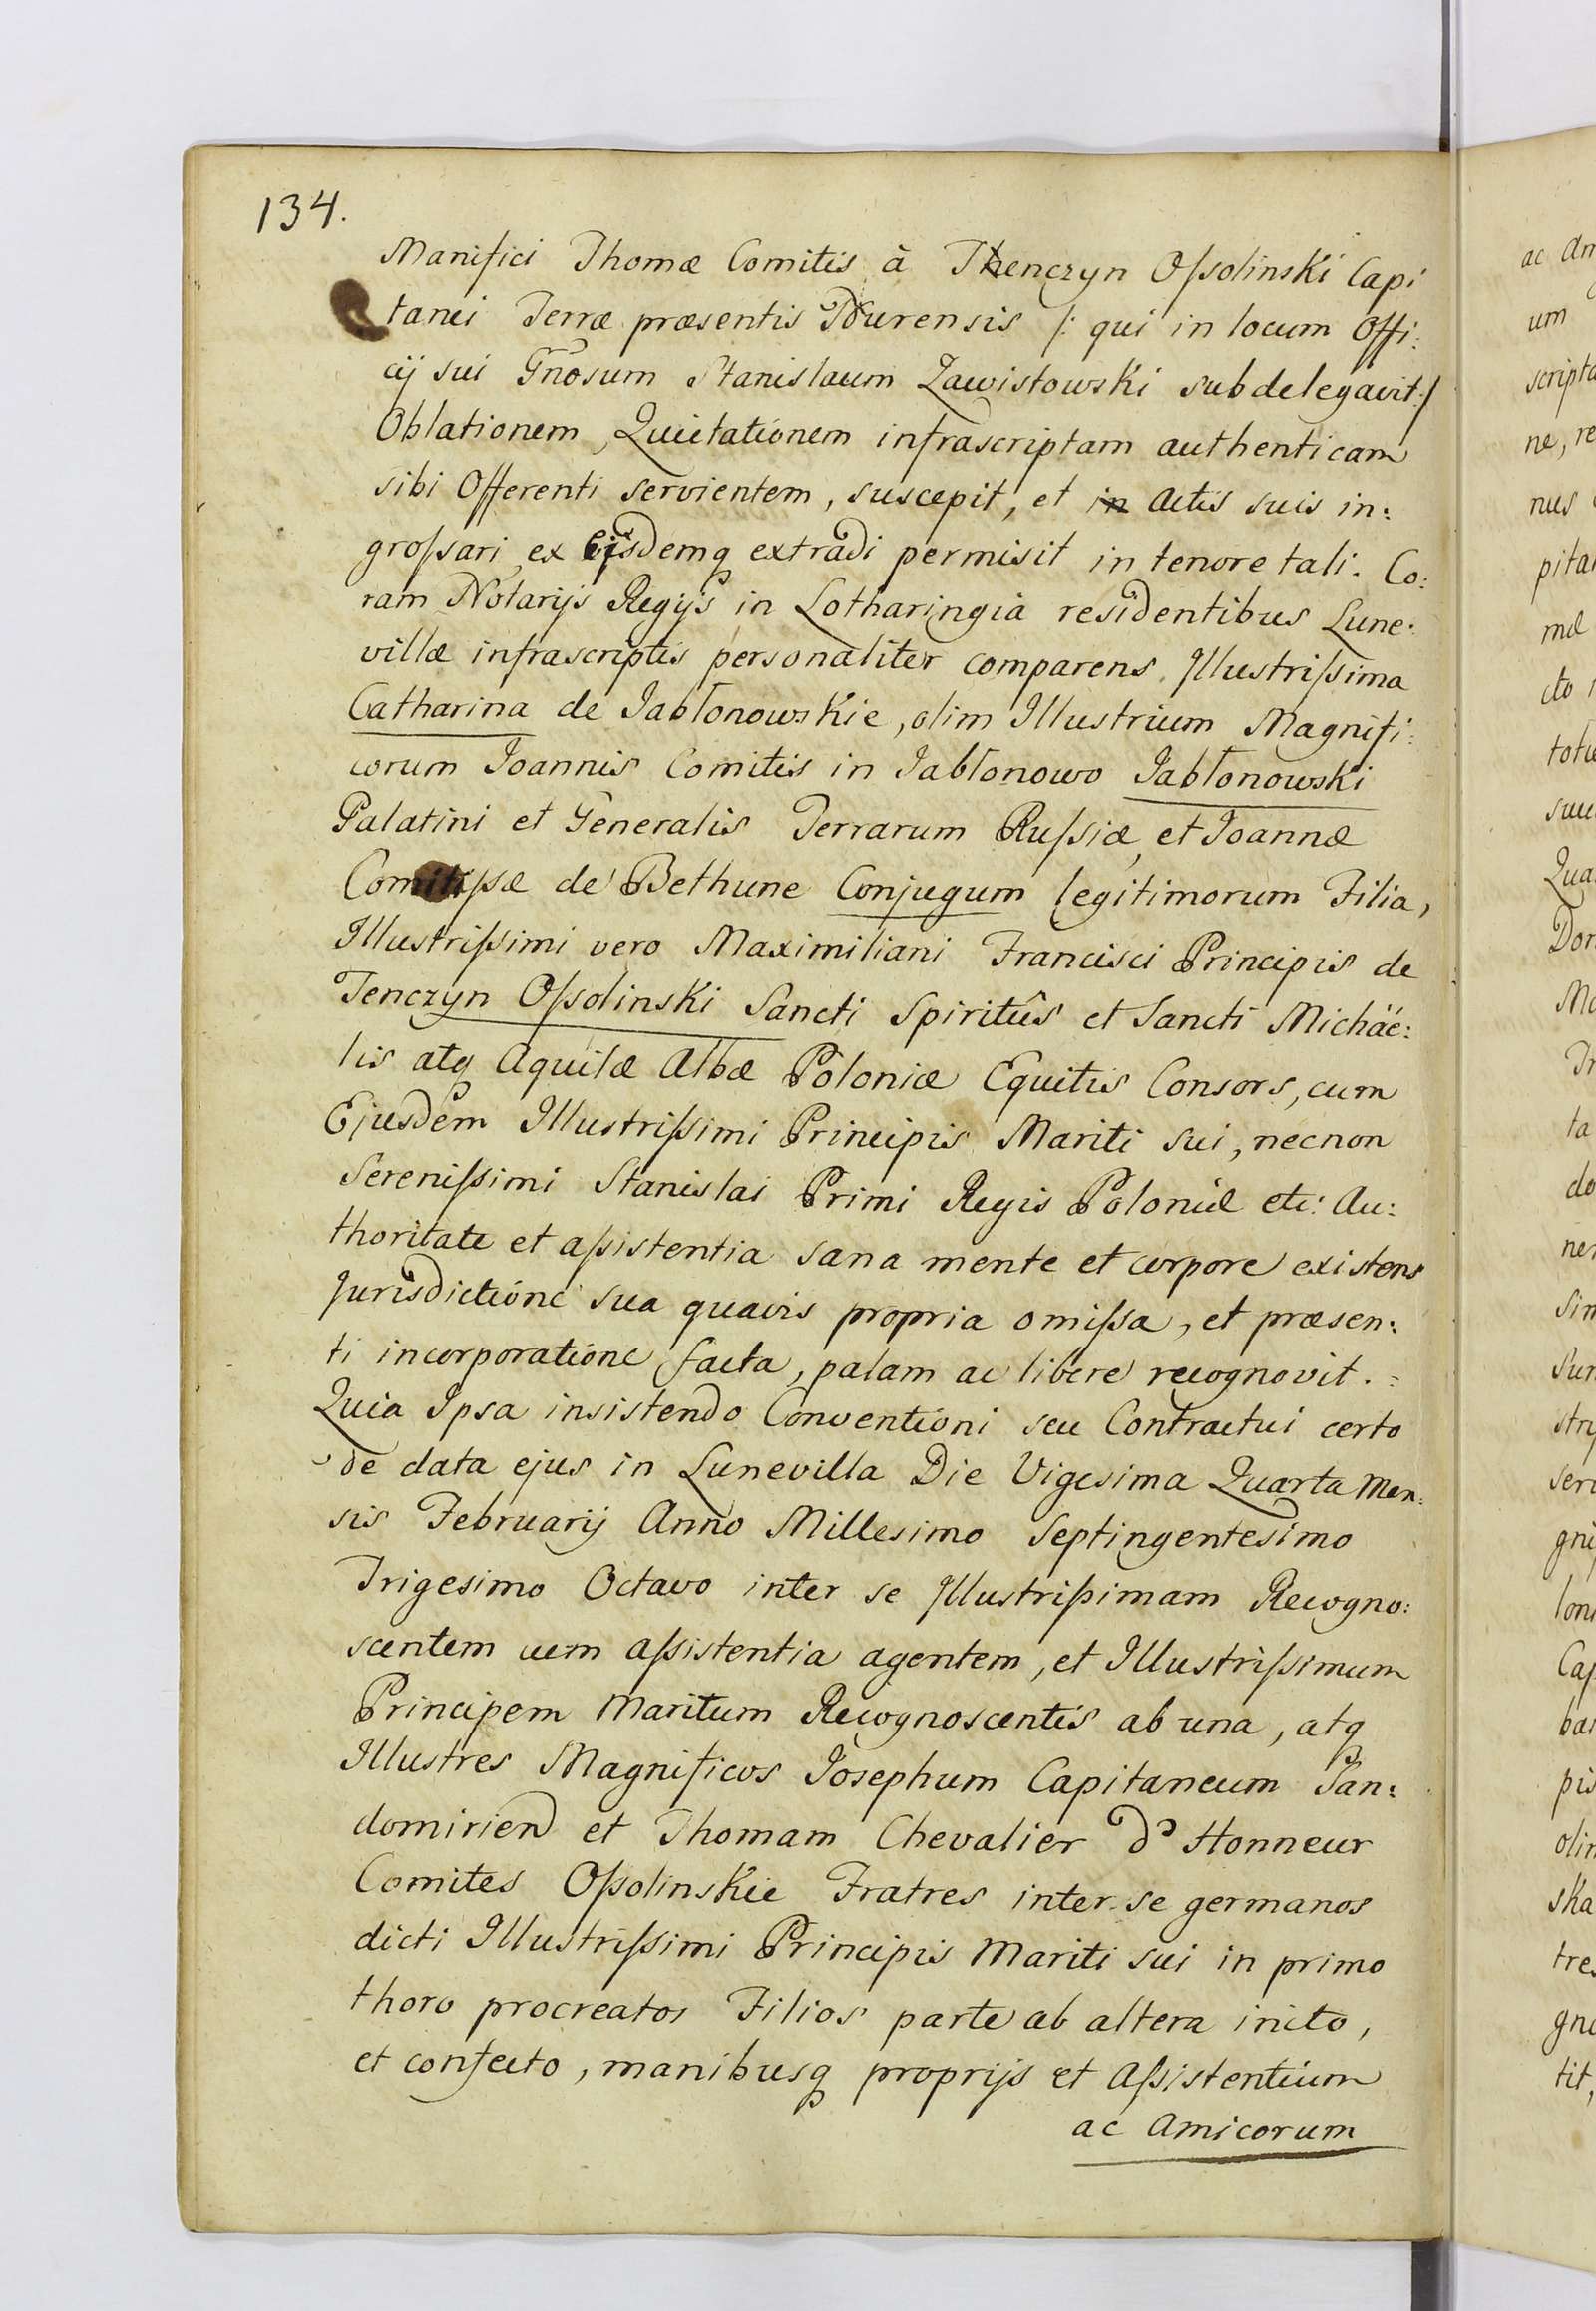 134.
Manifici Thomæ Comitis à Thenczyn Oſsolinski Capi
tanei Terræ præsentis Nurensis /: qui in locum Offi:
cÿ sui Gnosum Stanislaum Zawistowski subdelegavit:/
Oblationem, Quietationem infrascriptam authenticam
sibi Offerenti servientem, suscepit, et in Actis suis in:
groſsari, ex eisdemq extradi permisit in tenore tali. Co:
ram Notarÿs Regÿs in Lotharingia residentibus Lune:
villæ infrascriptis personaliter comparens Illustriſsima
Catharina de Jabłonowskie, olim Illustrium Magnifi:
corum Joannis Comitis in Jabłonowo Jabłonowski
Palatini et Generalis Terrarum Ruſsiæ, et Joannæ
Comitiſsæ de Bethune Conjugum legitimorum Filia,
Illustriſsimi vero Maximiliani Francisci Principis de
Tenczyn Oſsolinski Sancti Spiritûs et Sancti Michäé:
lis atq Aquilæ Albæ Poloniæ Equitis Consors, cum
Ejusdem Illustriſsimi Principis Mariti sui, necnon
Sereniſsimi Stanislai Primi Regis Poloniæ etc: Au:
thoritate et aſsistentia sana mente et corpore existens
Jurisdictione sua quavis propria omiſsa, et præsen:
ti incorporatione facta, palam ac libere recognovit. :
Quia Ipsa insistendo Conventioni seu Contractui certo
de data ejus in Lunevilla Die Vigesima Quarta Men:
sis Februarÿ Anno Millesimo Septingentesimo
Trigesimo Octavo inter se Illustriſsimam Recogno:
scentem cum aſsistentia agentem, et Illustriſsimum
Principem Maritum Recognoscentis ab una, atq
Illustres Magnificos Josephum Capitaneum San:
domirien et Thomam Chevalier d'Honneur
Comites Oſsolinskie Fratres inter se germanos
dicti Illustriſsimi Principis Mariti sui in primo
thoro procreatos Filios parte ab altera inito,
et confecto, manibusq proprÿs et Aſsistentium
ac Amicorum